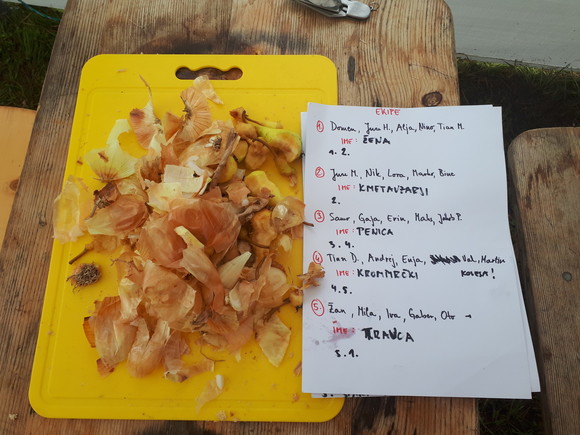 EKIPE
1 Domen, Juri H., Atja, Nino, Tian M.
IME: ŽENA
1. 2.
2 Juri M, Nik, Lora, Marko, Binc
IME: KMETAVZARJI
2.
3 Savo, Gaja, Erin, Maks, Jakob P.
IME: PENICA
3. 4.
4 Tian D., Andrej, Enja, Val, Martin
IME: KROMPIRČKI KOLESA!
4. 5.
5. Žan, Mila, Iva, Gaber, Oto
IME: TRAVCA
5. 1.